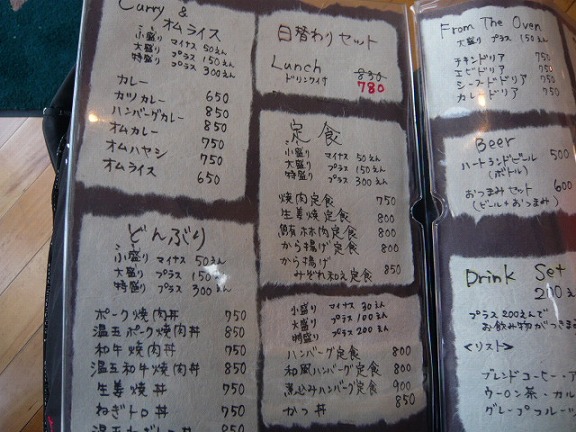 Curry &
オムライス
小盛り マイナス 50えん
大盛り プラス 150えん
特盛り プラス 300えん
カレー 650
カツカレー 850
ハンバーグカレー 850
オムカレー 750
オムハヤシ 750
オムライス 650
どんぶり
小盛り マイナス 50えん
大盛り プラス 150えん
特盛り プラス 300えん
ポーク焼肉丼 750
温玉ポーク焼肉丼 850
和牛焼肉丼 750
温玉和牛焼肉丼 850
生姜焼丼 750
ねぎトロ丼 750
日替わりセット
Lunch 830
ドリンク付 780
定食
小盛り マイナス 50えん
大盛り プラス 150えん
特盛り プラス 300えん
焼肉定食 750
生姜焼定食 800
から揚げ定食 800
から揚げ
みぞれ和え定食 850
小盛り マイナス 30えん
大盛り プラス 100えん
特盛り プラス 200えん
ハンバーグ定食 800
和風ハンバーグ定食 800
煮込みハンバーグ定食 900
かつ丼 850
From The Oven
大盛り プラス 150えん
チキンドリア 750
エビドリア 750
シーフードドリア 750
カレードリア 750
Beer
ハートランドビール 500
(ボトル)
おつまみセット 600
(ビール+おつまみ)
Drink Set
200え
プラス200えんで
お飲み物がつきま
<リスト>
ブレンドコーヒー・ア
ウーロン茶・カル
グレープフルーツ